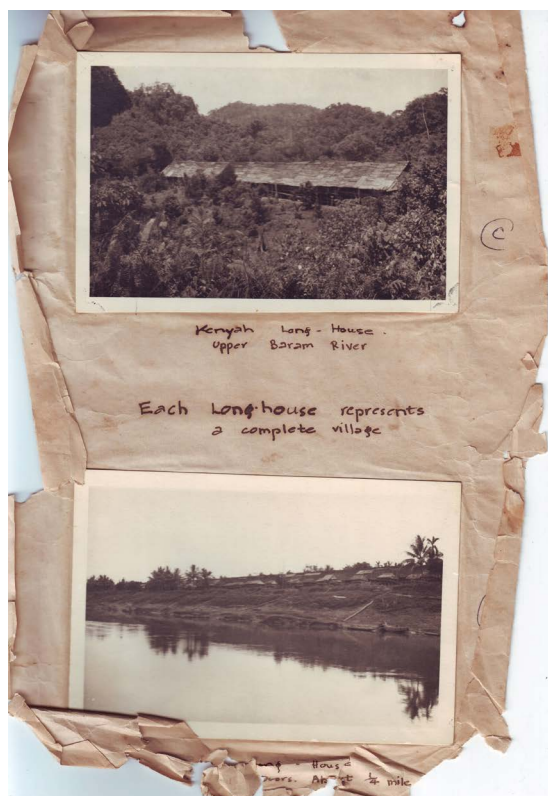 Kenyah Long-House.
Upper Baram River
C
Each Long-house represents
a complete village
Long-House
doors. About ¼ mile